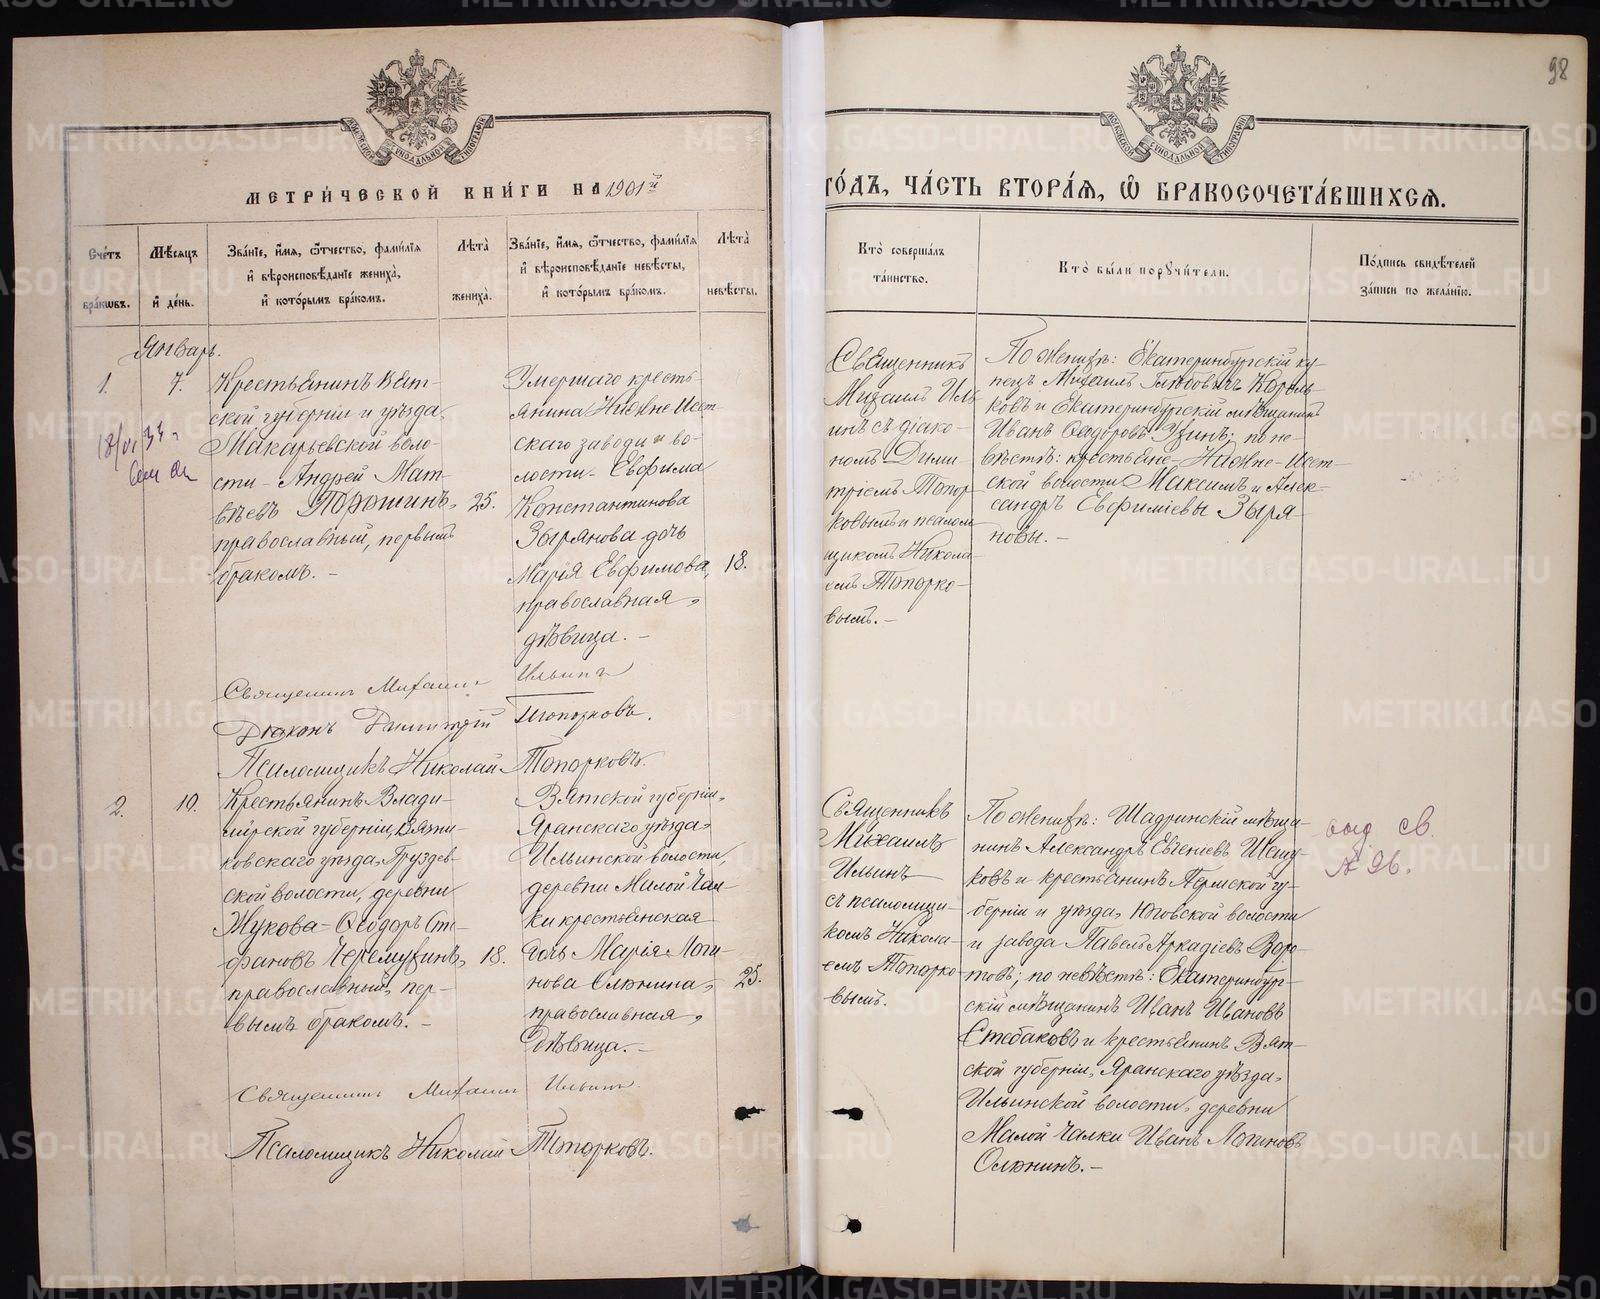 98
МЕТРИ́ЧЕСКОЙ КНИ́ГИ НА 1901й
ГО́ДЪ, ЧА́СТЬ ВТОРА́Я, Ѿ БРАКОСОЧЕТА́ВШИХСЯ.
Сче́тъ бра́кѡвъ.
Мѣ́сяцъ и҆ де́нь.
Зва́нїе, и҆́мя, ѻ҆́тчество, фами́лїя
и҆ вѣроисповѣ́данїе жениха̀,
и҆ кото́рымъ бра́комъ.
Лѣта̀
жениха̀.
Зва́нїе, и҆́мя, ѻ҆́тчество, фами́лїя
и҆ вѣроисповѣ́данїе невѣ́сты,
и҆ кото́рымъ бра́комъ.
Лѣта̀
невѣ́сты.
Кто̀ соверша́лъ
та́инство.
Кто̀ бы́ли поручи́тели.
По́дпись свидѣ́телей
за́писи по жела́нїю.
Январь.
1.
7.
Крестьянинъ Вят-
ской губерніи и уѣзда,
Макарьевской воло-
сти - Андрей Мат-
вѣевъ Торошинъ,
православный, первымъ
бракомъ. -
25.
Умершаго кресть-
янина Нижне-Исет-
скаго завода и во-
лости - Евфима
Константинова
Зырянова дочь
Марія Евфимова,
православная,
дѣвица. -
18.
Священникъ
Михаилъ Иль-
инъ съ діако-
номъ Дими-
тріемъ Топор-
ковымъ и псалом-
щикомъ Никола-
емъ Топорко-
вымъ. -
По женихѣ: Екатеринбургскій ку-
пецъ Михаилъ Глѣбовичъ Король-
ковъ и Екатеринбургскій мѣщанинъ
Иванъ Ѳедоровъ Узинъ; по не-
вѣстѣ: крестьяне - Нижне-Исет-
ской волости Максимъ и Алек-
сандръ Евфиміевы Зыря-
новы. -
Священникъ Михаилъ Ильинъ
Діаконъ Димитрій Топорковъ.
Псаломщикъ Николай Топорковъ.
2.
10.
Крестьянинъ Влади-
мірской губерніи, Вязни-
ковскаго уѣзда, Груздев-
ской волости, деревни
Жукова - Ѳеодоръ Сте-
фановъ Черемухинъ,
православный, пер-
вымъ бракомъ. -
18.
Вятской губерніи,
Яранскаго уѣзда,
Ильинской волости,
деревни Малой Чал-
ки крестьянская
дочь Марія Логи-
нова Олюнина,
православная,
Дѣвица. -
25.
Священникъ
Михаилъ
Ильинъ
съ псаломщи-
комъ Никола-
емъ Топорко-
вымъ.
По женихѣ: Шадринскій мѣща-
нинъ Александръ Евгеніевъ
ковъ и крестьянинъ Пермской гу-
берніи и уѣзда, Юговской волости
и завода Павелъ Аркадіевъ Воро-
товъ; по невѣстѣ: Екатеринбург-
скій мѣщанинъ Иванъ Ивановъ
Стебаковъ и крестьянинъ Вят-
ской губерніи, Яранскаго уѣзда,
Ильинской волости, деревни
Малой Чалки Иванъ Логиновъ
Олюнинъ. -
выд св.
№ 96.
Священникъ Михаилъ Ильинъ
Псаломщикъ Николай Топорковъ.
METRIKI.GASO-URAL.RU